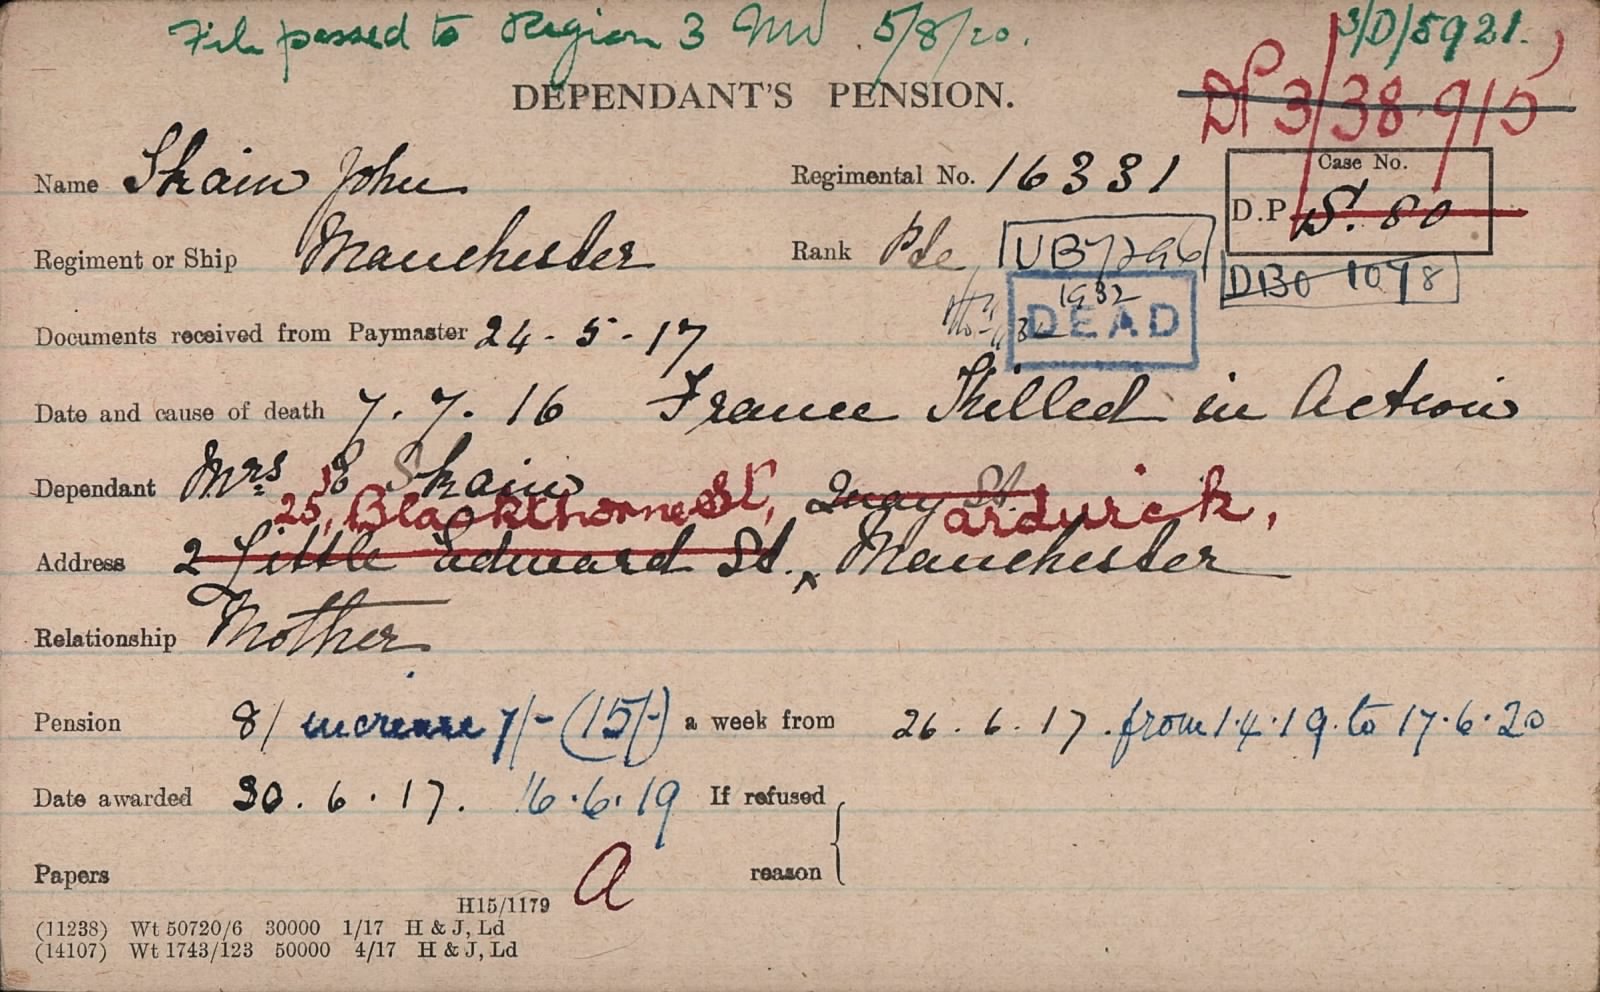 File passed to Region 3 5/8/20.
3/D/5921.
DEPENDANT'S PENSION.
DP 3/38.915
Name Skain John Regimental No. 16331
Case No.
D.P. S. 80
Regiment or Ship Manchester Rank Pte UB7296
DBO 1078
Documents received from Paymaster 24-5-17
1932
DEAD
Date and cause of death 7.7.16 France Killed in Action
Dependant Mrs E Skain
25, Blackthorne St, Quay St. Ardwick,
Address 2 Little Edward St. Manchester
Relationship Mother
Pension 8/ increase 7/- (15/-) a week from 26.6.17. from 1.4.19. to 17.6.20
Date awarded 30.6.17. 16.6.19 If refused
Papers A reason
H15/1179
(11238) Wt 50720/6 30000 1/17 H & J, Ld
(14107) Wt 1743/123 50000 4/17 H & J, Ld